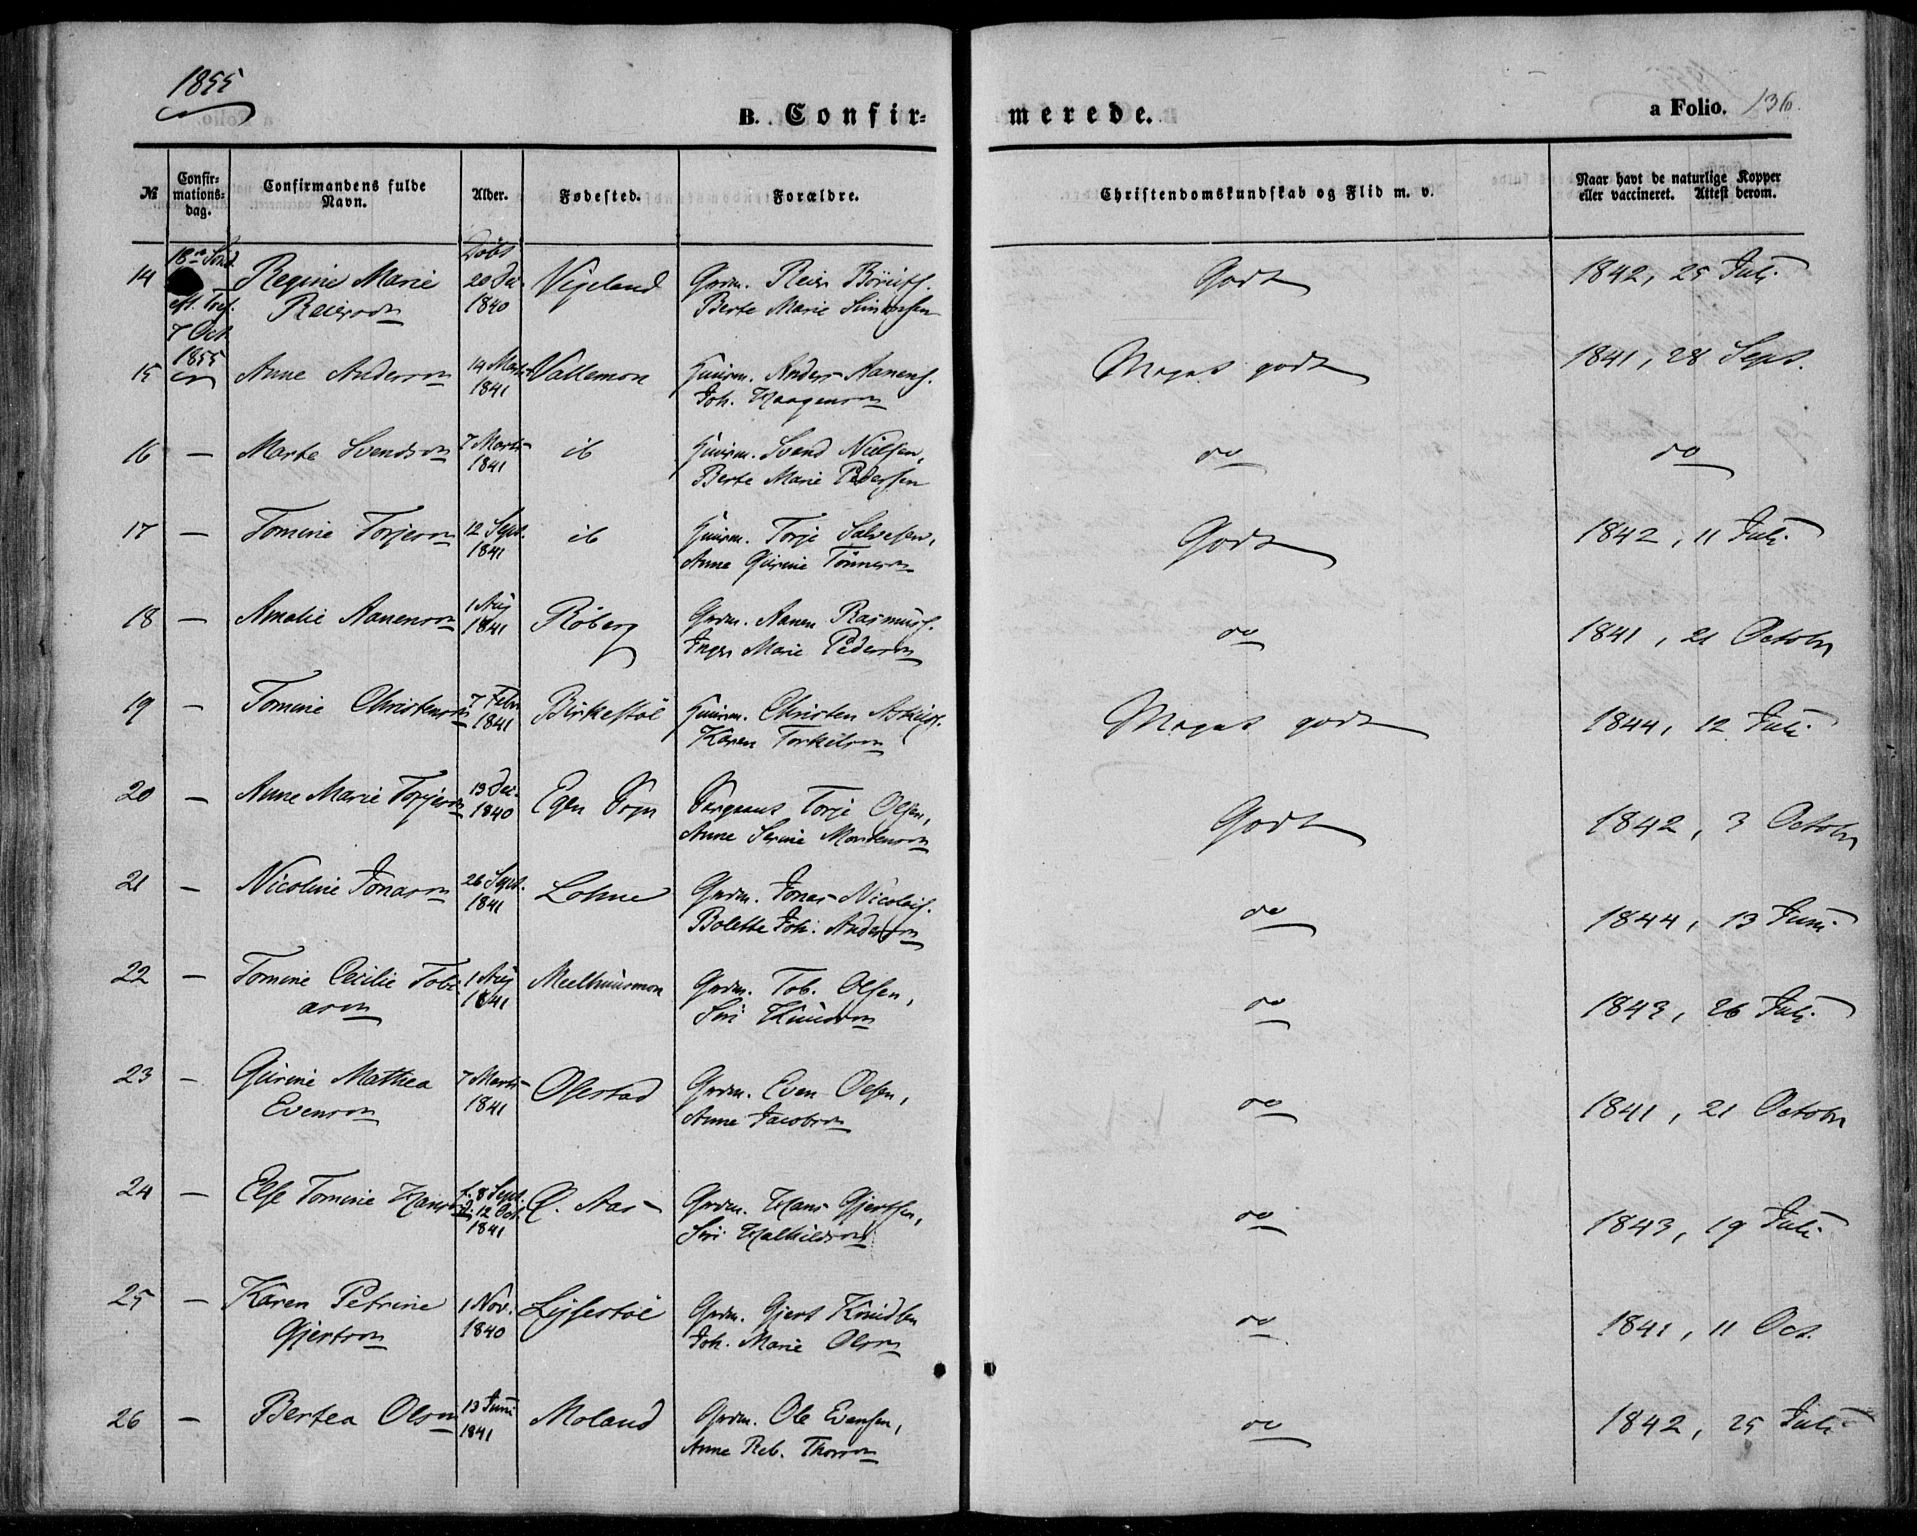 1855
B. Confirmerede.
a Folio. 136.
№ Confirmationsdag. Confirmandens fulde Navn. Alder. Fødested. Forældre. Christendomskundskab og Flid m. v. Naar havt de naturlige Kopper eller vaccineret. Attest derom.
14 18de Sønd. Regine Marie Døbt 20 Dec. 1840 Vigeland Grdm. Godt 1842, 25 Juli
7 Oct. 1855 Berte Marie Simonsen
15 Anne Andersen 14 Marts 1841 Vallemon Huusm. Anders Aanens. Meget godt 1841, 28 Sept.
Joh. Haagensen
16 — Marte Svendsen 7 Marts 1841 ib Huusm. Svend Nielsen, do do
Berte Marie Pedersen
17 — Tomine Torjesen 12 Sept. 1841 ib Huusm. Torje Salvesen, Godt 1842, 11 Juli
Anne Gurine Tønnesen
18 — Amalie Aanensen 1 Aug 1841 Røberg Grdm. Aanen Rasmuss. do 1841, 21 October
Inger Marie Pedersen
19 — Tomine Christensen 7 Febr 1841 Birkestøl Huusm. Christen Meget godt 1844, 12 Juli
Karen Torkilsen
20 — Anne Marie Torjesen 13 Dec. 1840 Egen Sogn Sergeant Torje Olsen, Godt 1842, 3 October
Anne Serine Mortensen
21 — Nicoline Jonasen 26 Sept. 1841 Lohne Grdm. Jonas Nicolais. do 1844, 13 Juni
Bolette Joh. Andersen
22 — Tomine Cecilie Tobiasen 1 Aug 1841 Meelhuusmon Grdm. Tob. Olsen, do 1843, 26 Juli
Siri Knudsen
23 — Gurine Mathea 7 Marts 1841 Olestad Grdm. Even Olsen, do 1841, 21 October
Evensen Anne Jacobsen
24 — Else Tomine Hansen f. 8 Sept. d. 12 Oct. 1841 Ø. Aas Grdm. Hans Gjertsen, do 1843, 19 Juli
Siri
25 — Karen Petrine 1 Nov. 1840 Lyshestøl Grdm. Gjert Knudsen do 1841, 11 Oct.
Gjertsen Joh. Marie Olsen
26 — Bertea Olsen 13 Juni 1841 Moland Grdm. Ole Evensen, do 1842, 25 Juli
Anne Reb. Thorsen